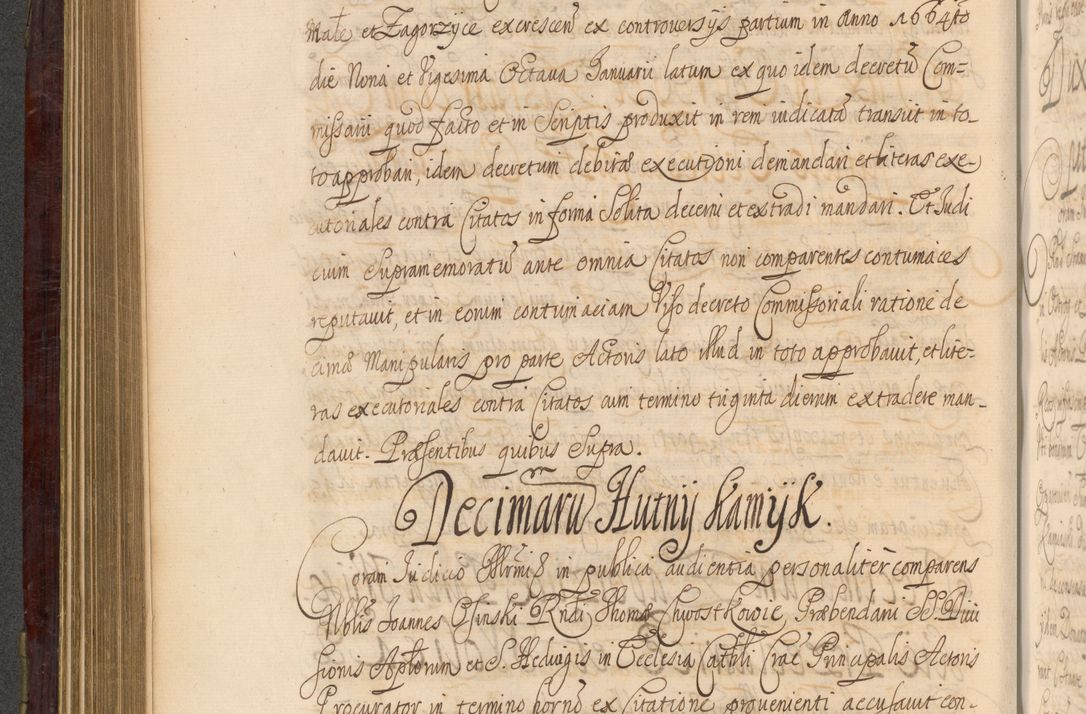 Małe et Zagorzyce excrescen̄ ex controversÿs partium in Anno 1664to
die Nona et Vigesima Octava Januarii latum ex quo idem decretū Com=
missarii quod facto et in Scriptis produxit in rem iudicatā transiit in to-
to approbari, idem decretum debitæ executÿoni demandari et literas exe-
cutoriales contra Citatos in forma Solita decerni et extradi mandari. Et Judi
cium Supramemoratū ante omnia Citatos non comparentes contumaces
reputavit, et in eorum contumaciam Viso decreto Commissoriali ratione de
cimæ Manipularis pro parte Actoris lato illud in toto approbavit, et lite-
ras executoriales contra Citatos cum termino triginta dierum extradere man-
davit. Præsentibus quibus Supra.
Decimarū Hutnÿ kamÿk.
Coram Judicio in publica audientia personalitèr comparens
Nblis Joannes Osinski Rndi Thomæ Chwostkowic, Præbendarii SS. Divi
sionis Aplorum et S. Hedvigis in Ecclesia Cathli Crac Principalis Actoris
Procurator in termino horno ex Citatione provenienti accusavit con-